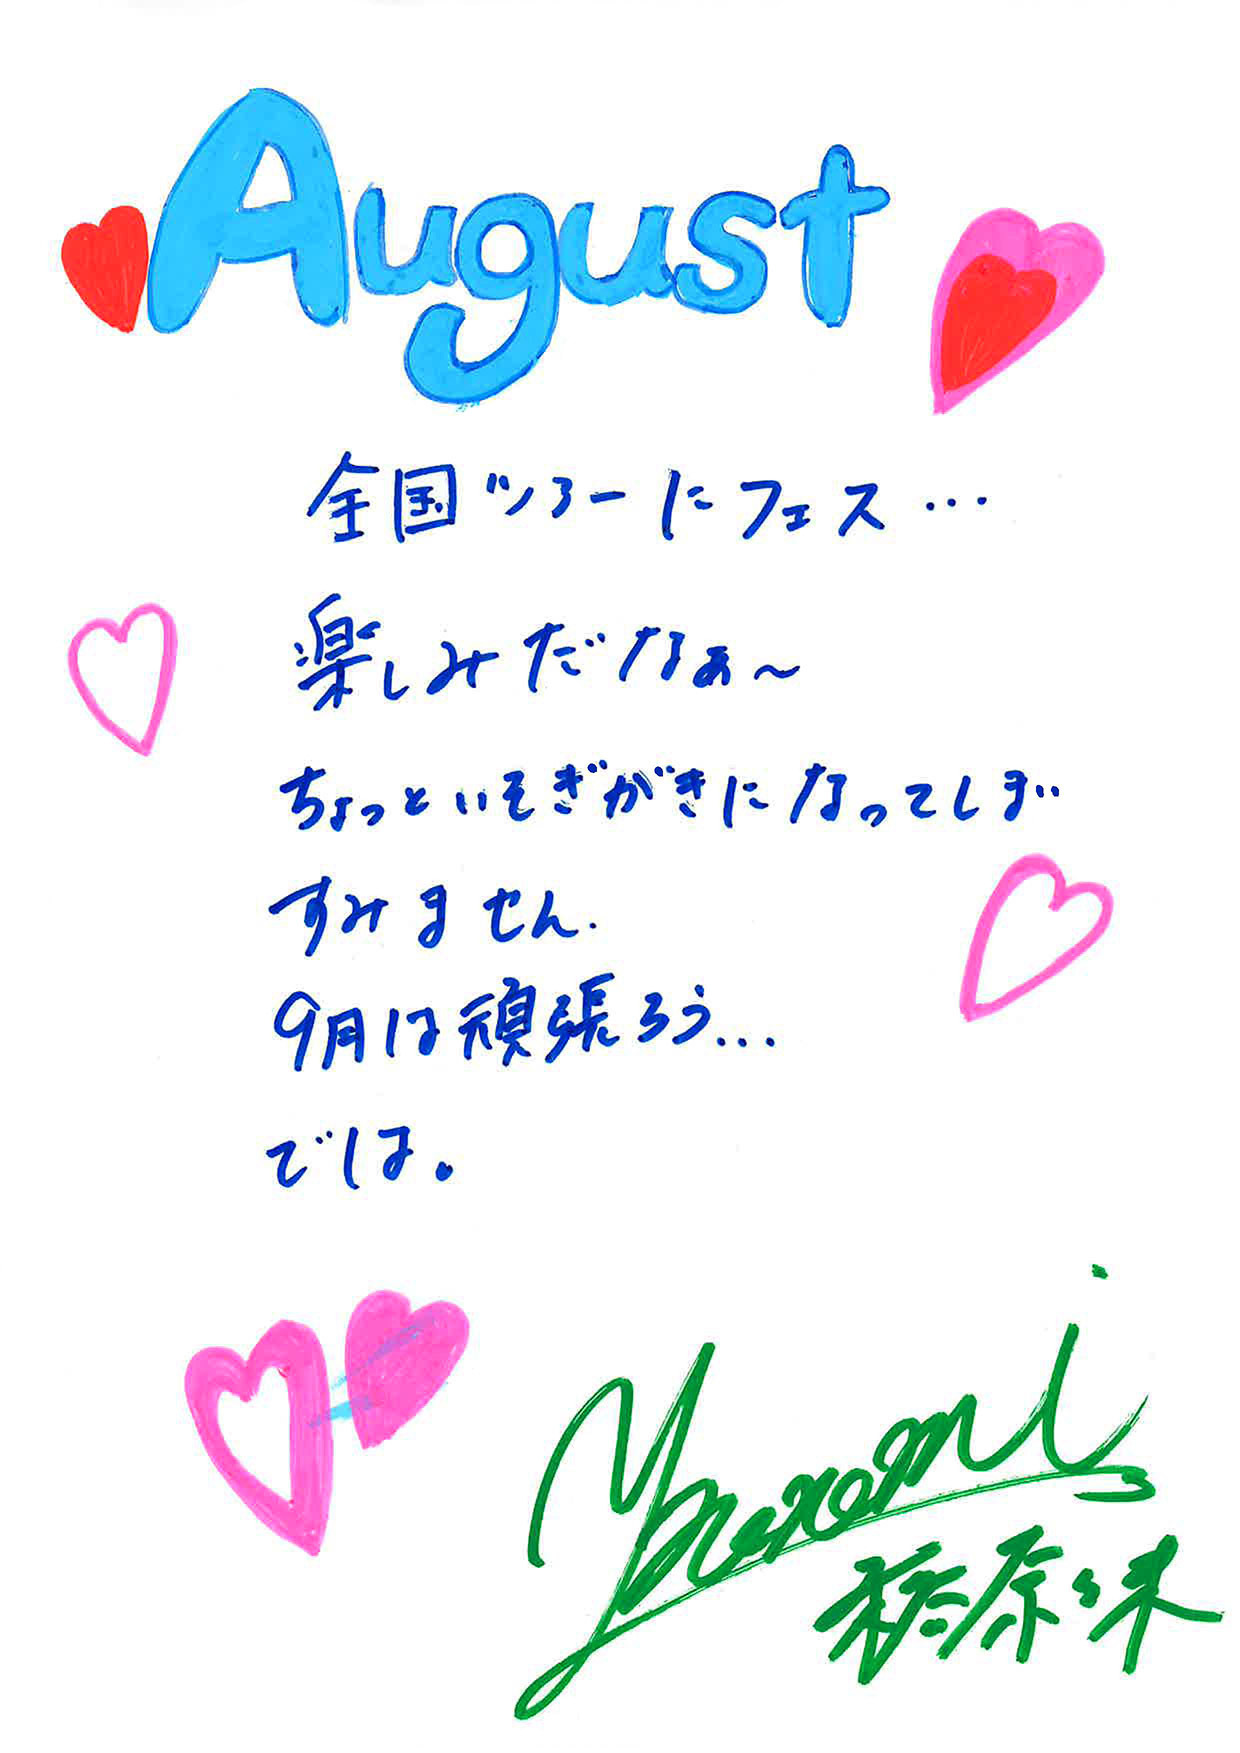 August
全国ツアーにフェス…
楽しみだなぁ～
ちょっといそぎがきになってしまい
すみません.
9月は頑張ろう…
では。